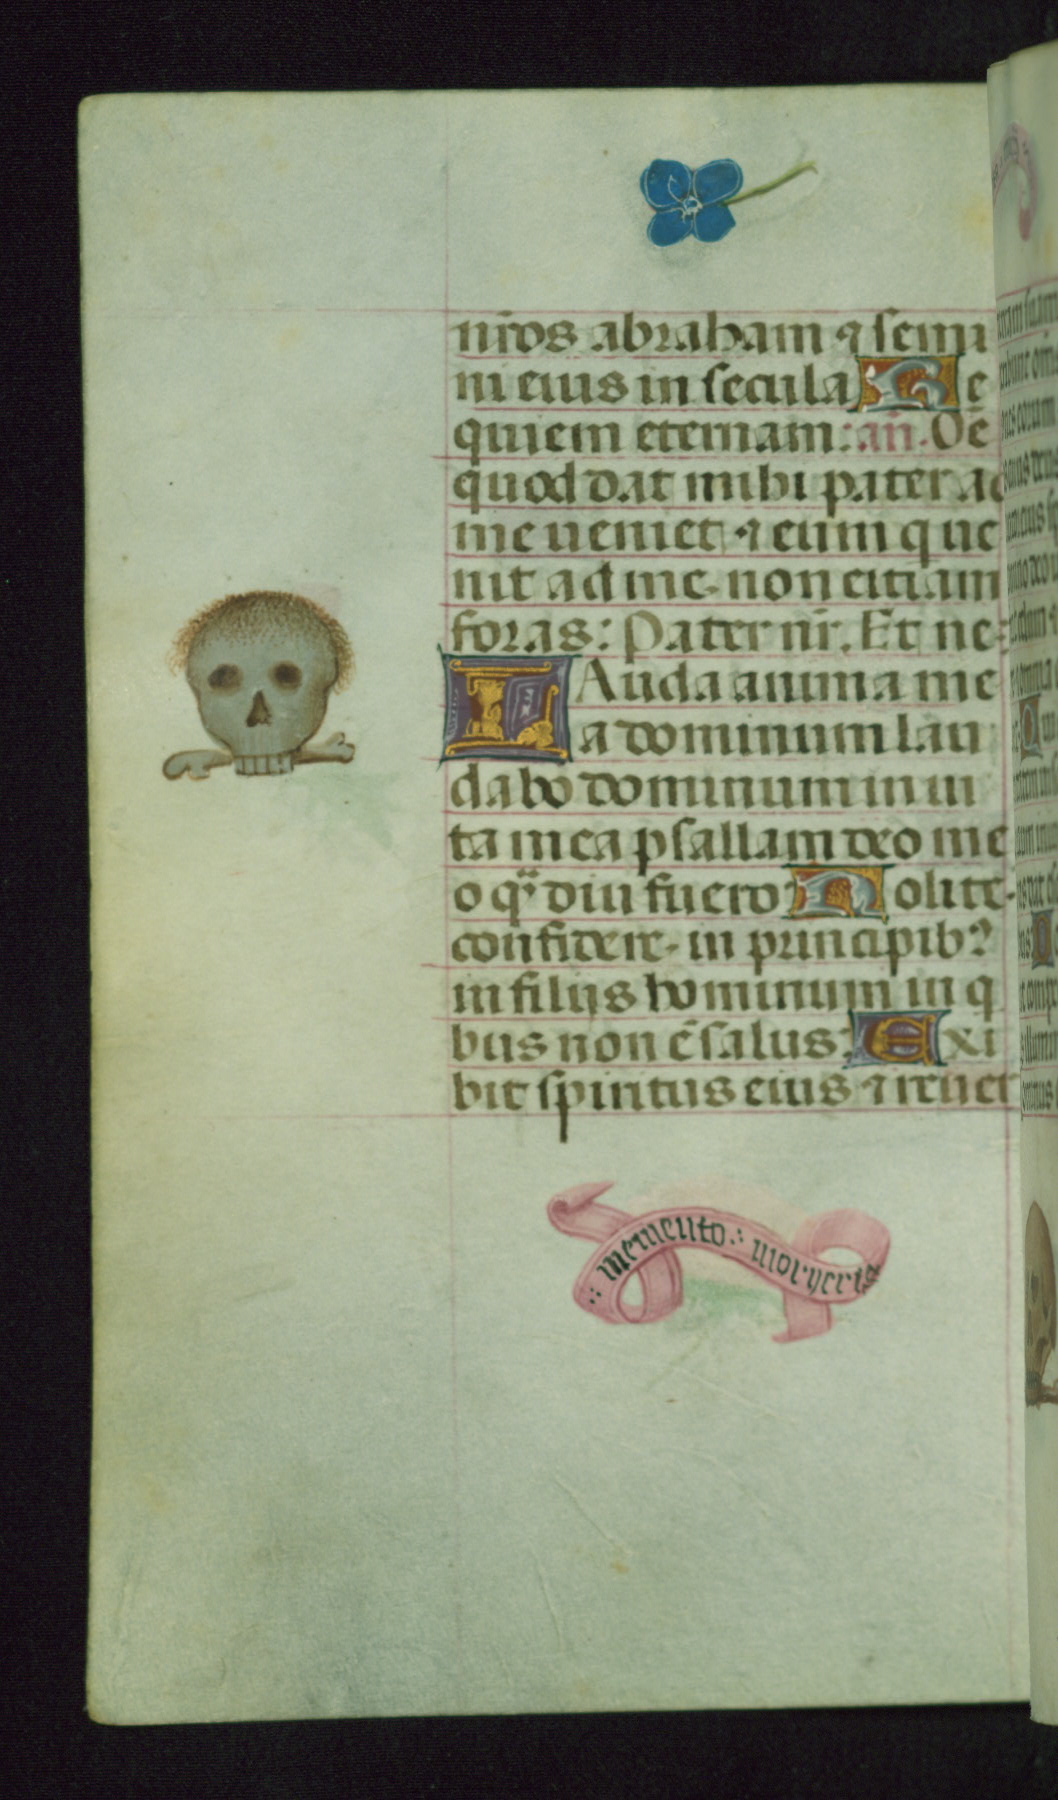 nr̄os abraham ⁊ semi
ni eius in secula Re
quiem eternam: an̄. Oē
quod dat mihi pater ad
me ueniet ⁊ eum q ue
nit ad me non eiciam
foras: Pater nr̄. Et ne
LAuda anima me
a dominum lau
dabo dominum in ui
ta mea psallam deo me
o qͣdiu fuero Nolite
confidere in principibꝰ
in filijs hominum in q
bus non ē salus: Exi
bit spiritus eius ⁊ reuer
:: memento .: mor